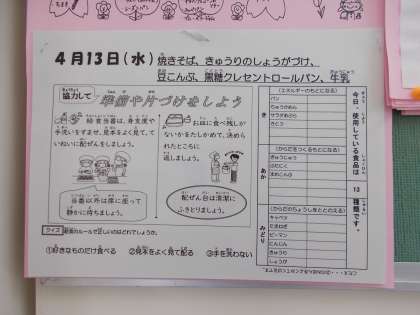 4月13日(水)
焼きそば、きゅうりのしょうがづけ、
豆こんぶ、黒糖クレセントロールパン、牛乳
協力して
準備や片づけをしよう
給食当番は、身支度や
手洗いをすませ、見本をよく見て、て
いねいに配ぜんをしましょう。
お皿に食べ残しが
ないかをたしかめて、決められ
たところに
返しましょう。
当番以外は席に座って
静かに待ちましょう。
配ぜん台は清潔に
ふきとりましょう。
クイズ
給食のルールで正しいのはどれでしょうか。
①好きなものだけ食べる ②見本をよく見て配る ③手を洗わない
今日、使用している食品は 13 種類です。
き
(エネルギーのもとになる)
パン
ちゅうかめん
サラダあぶら
さとう
あか
(からだをつくるもとになる)
ぎゅうにゅう
ぶたにく
まめこんぶ
みどり
(からだのちょうしをととのえる)
キャベツ
たまねぎ
ピーマン
にんじん
きゅうり
しょうが